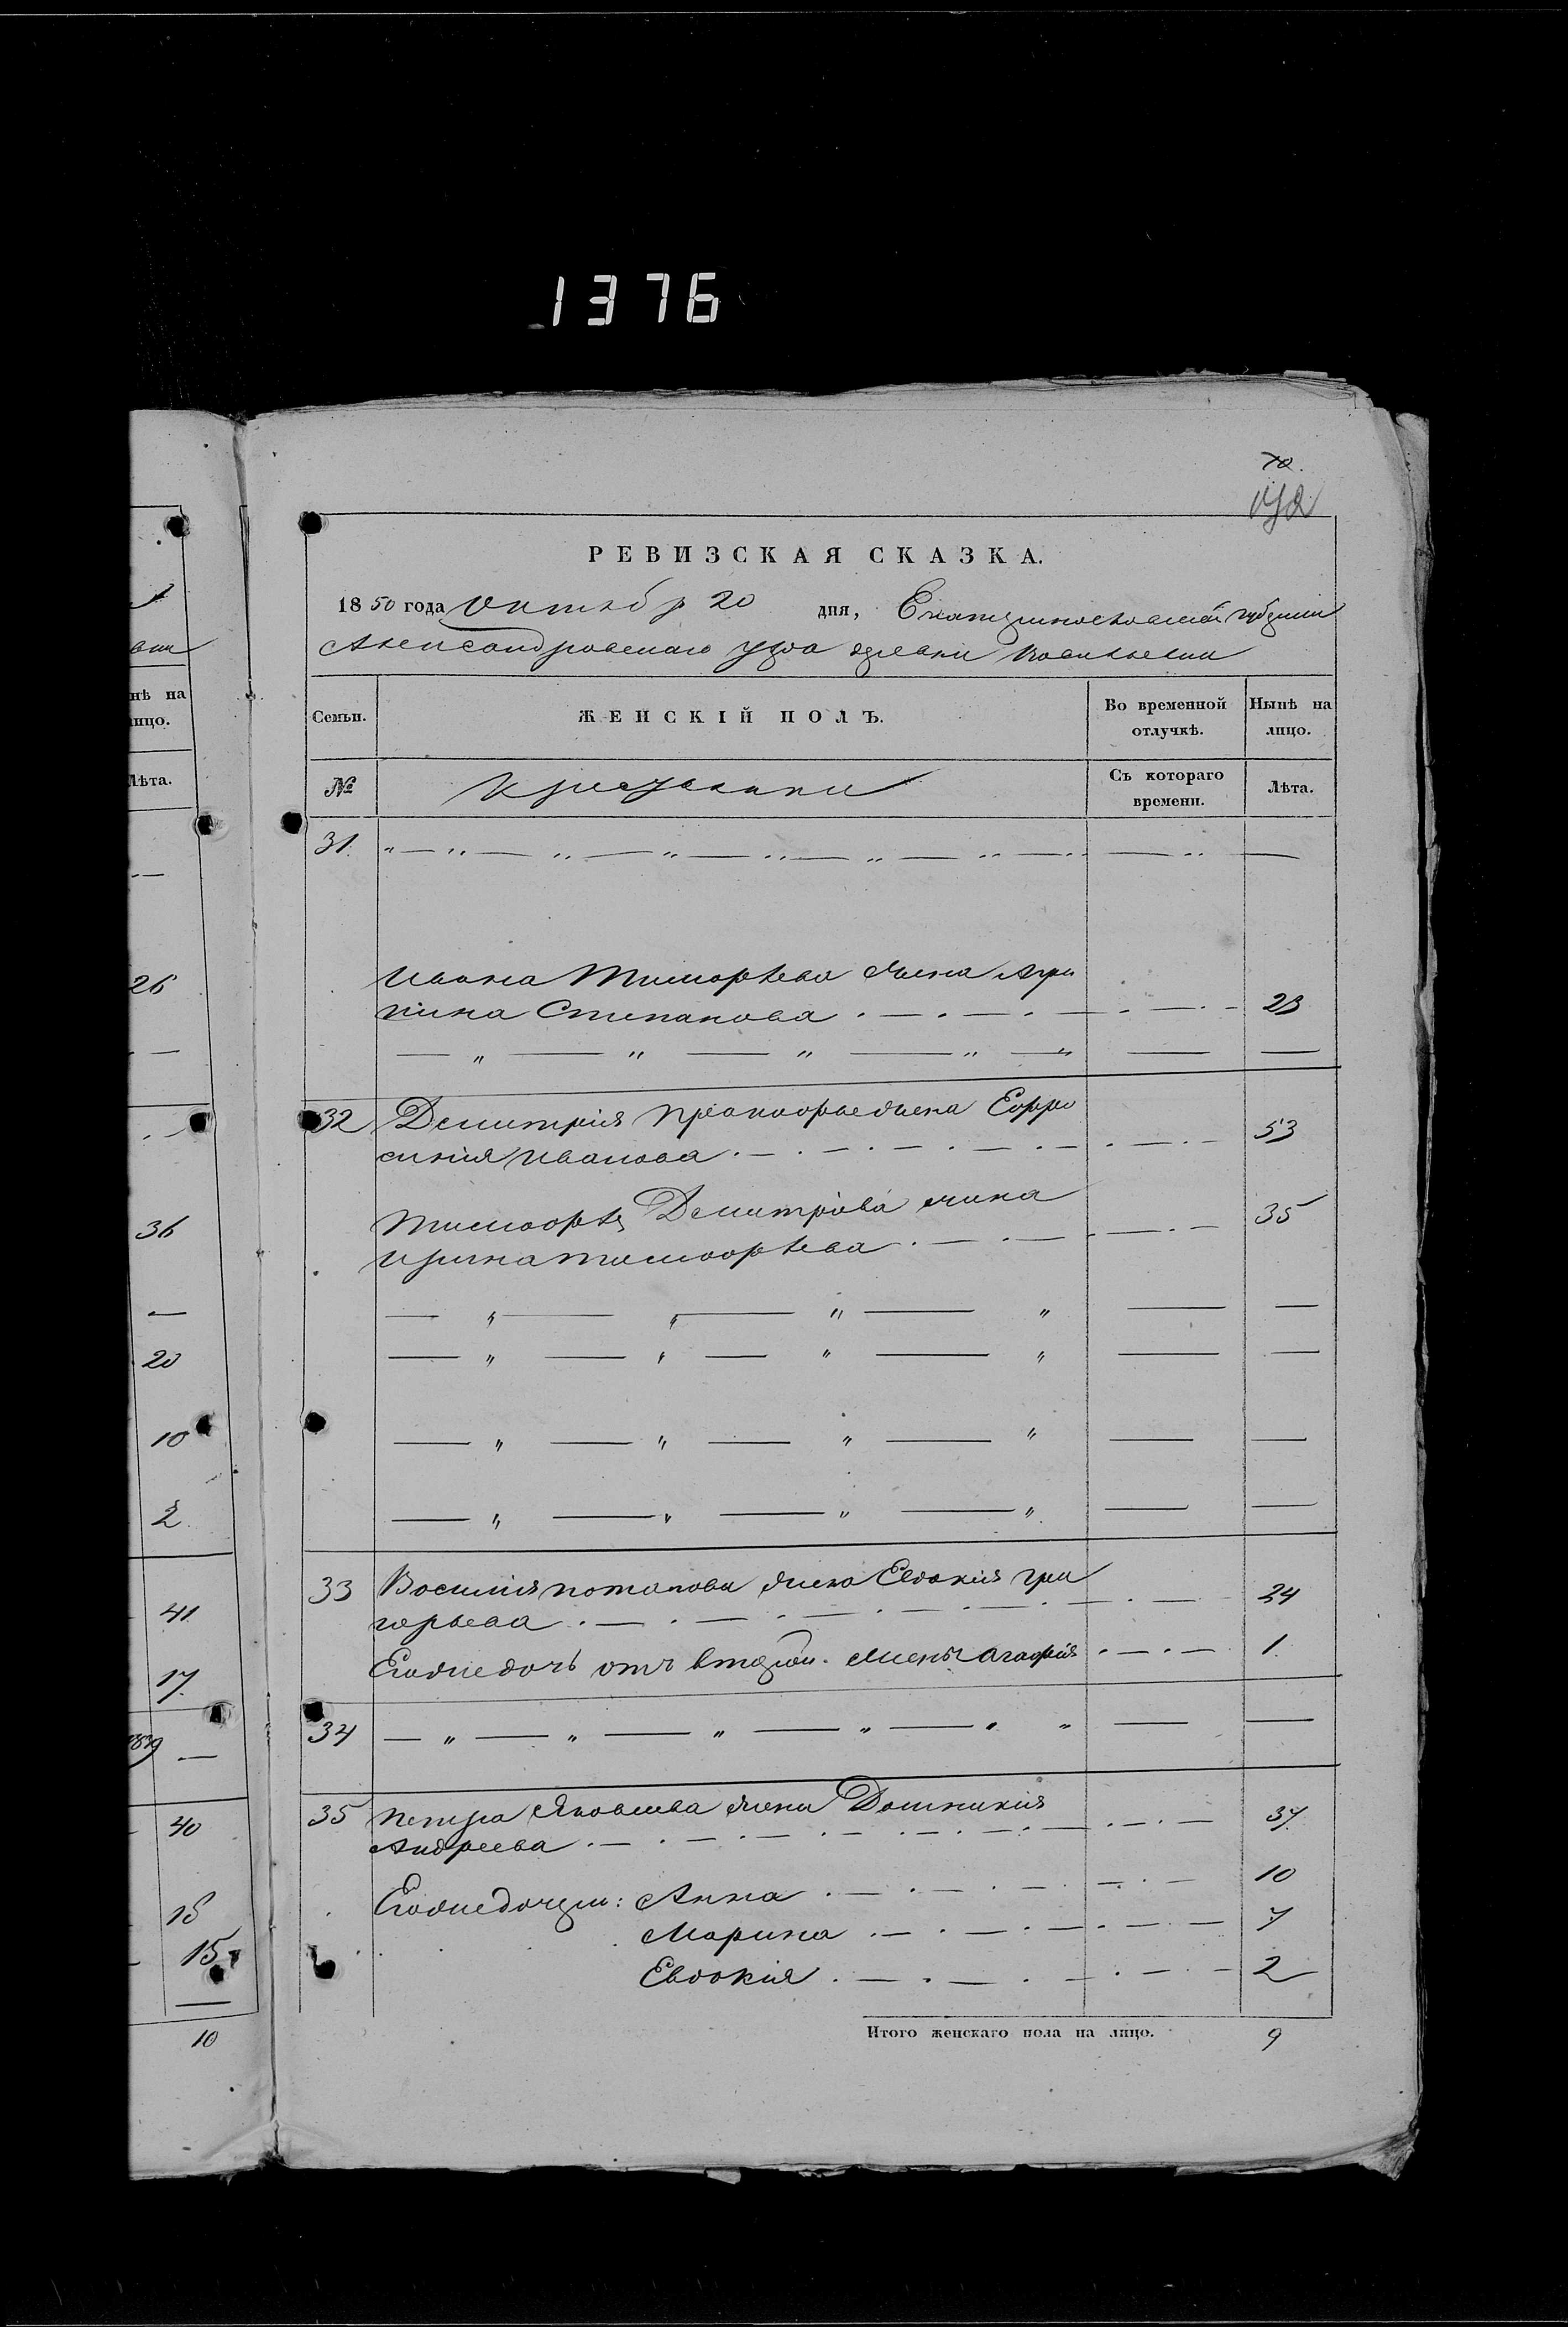 1376
70.
РЕВИЗСКАЯ СКАЗКА.
1850 года Октябр 20 дня, Екатеринославской губернии
Александровскаго уезда деревни
Семьи.
ЖЕНСКІЙ ПОЛЪ.
Во временной отлучкѣ.
Нынѣ на лицо.
№
Крестьяни
Съ котораго времени.
Лѣта.
31.
Ивана Тимофѣева жена Агри
пина Степанова 23
32 Демитрія Прокофьева жена Ефро
синія Иванова 53
Тимофѣя Демитріева жена 35
Ирина Тимофѣева
33 Василія Потапова жена Евдокия Гри 24
горьева
Его же дочь отъ второй жены Агафія 1
34
35 Петра Яковлева жена Домникия 37
Андреева
Его же дочери: Анна 10
Марина 7
Евдокия 2
Итого женскаго пола на лицо. 9
нѣ на
лицо.
Лѣта.
26
36
20
10
2
41
17
40
18
15
10